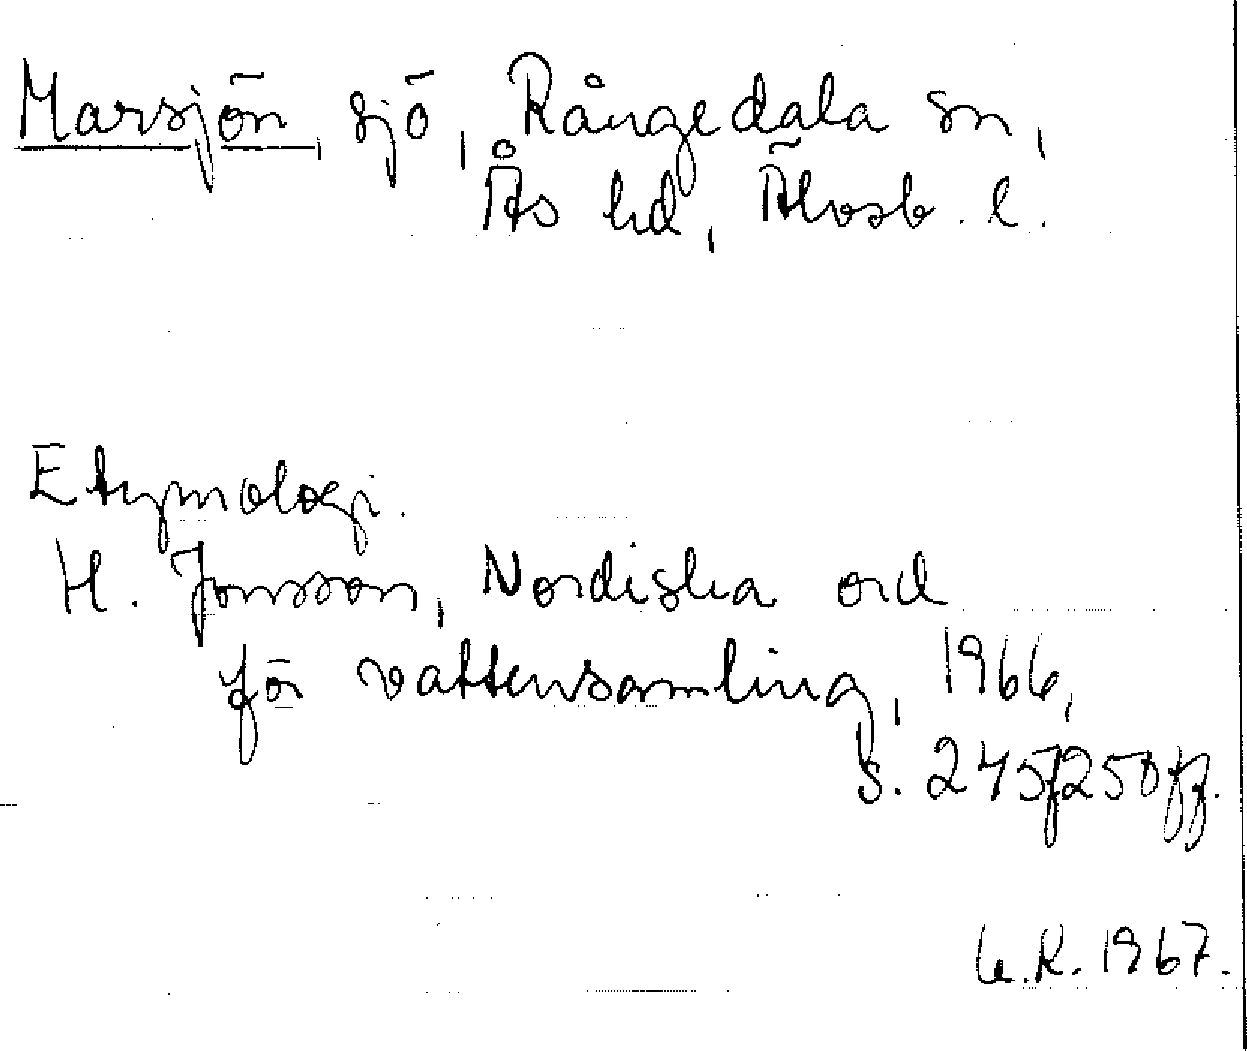 Marsjön, sjö, Rångedala sn,
Ås hd, Älvsb. l.
Etymologi.
H. Jonsson, Nordiska ord
för vattensamling, 1966,
s. 245f, 250ff.
1967.